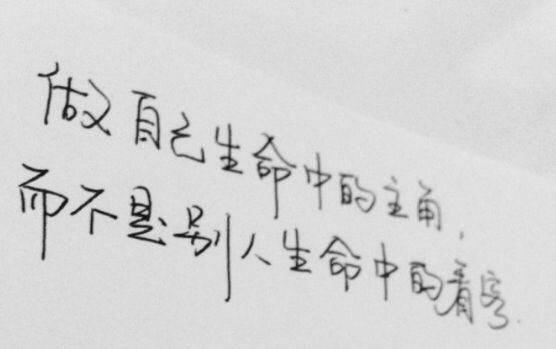 做自己生命中的主角,
而不是别人生命中的看客.